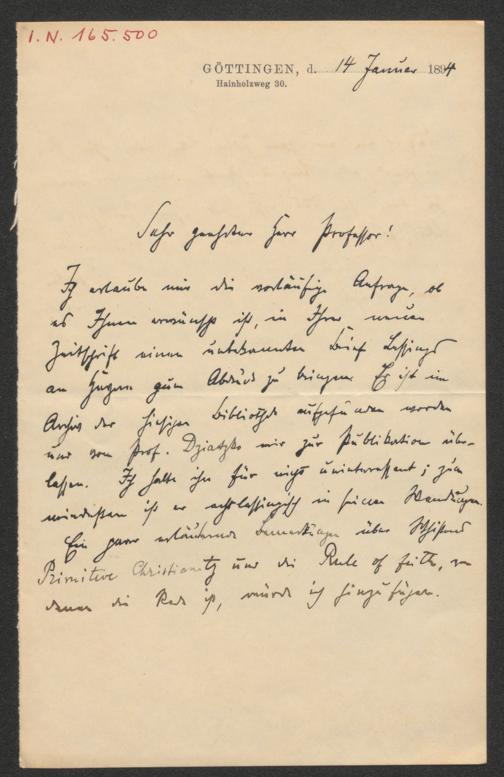 I. N. 165.500
GÖTTINGEN, d. 14 Januar 1894
Hainholzweg 30.
Sehr geehrter Herr Professor!
Ich erlaube mir die vorläufige Anfrage, ob
es Ihnen erwünscht ist, in Ihrer neuen
Zeitschrift einen unbekannten Brief Lessings
an Heyne zum Abdruck zu bringen. Er ist im
Archiv der hiesigen Bibliothek aufgefunden worden
und von Prof. Dziatzko mir zur Publikation über-
lassen. Ich halte ihn für nicht uninteressant; zum
mindesten ist er echt lessingisch in seinen Wendungen.
Ein paar erläuternde Bemerkungen über Whistons
Primitive Christianity und die Rule of faith, von
denen die Rede ist, würde ich hinzufügen.